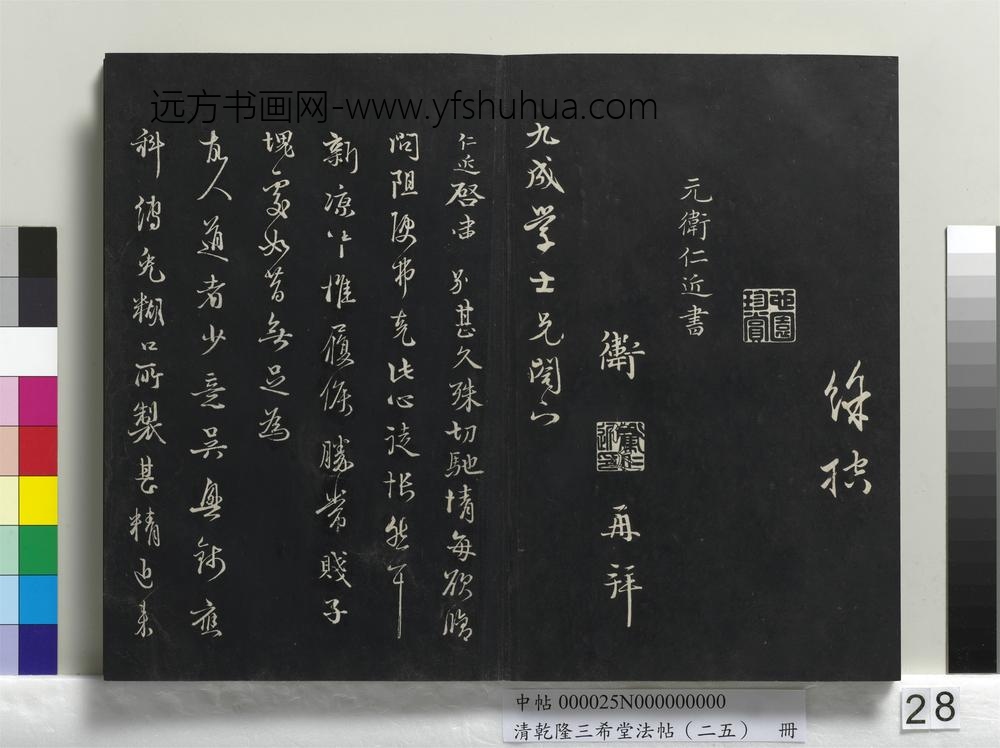 远方书画网-www.yfshuhua.com
徐
元衛仁近書
衛
再拜
九成學士兄閣下
仁近啓 別甚久殊切馳情每欲
問阻便弗克此心徒悵然
新涼 惟履候勝常賤子
塊處如昔無足為
友人道者少意吳興 應
科傳 糊口所製甚精近来
中帖 000025N000000000
清乾隆三希堂法帖（二五） 冊
28